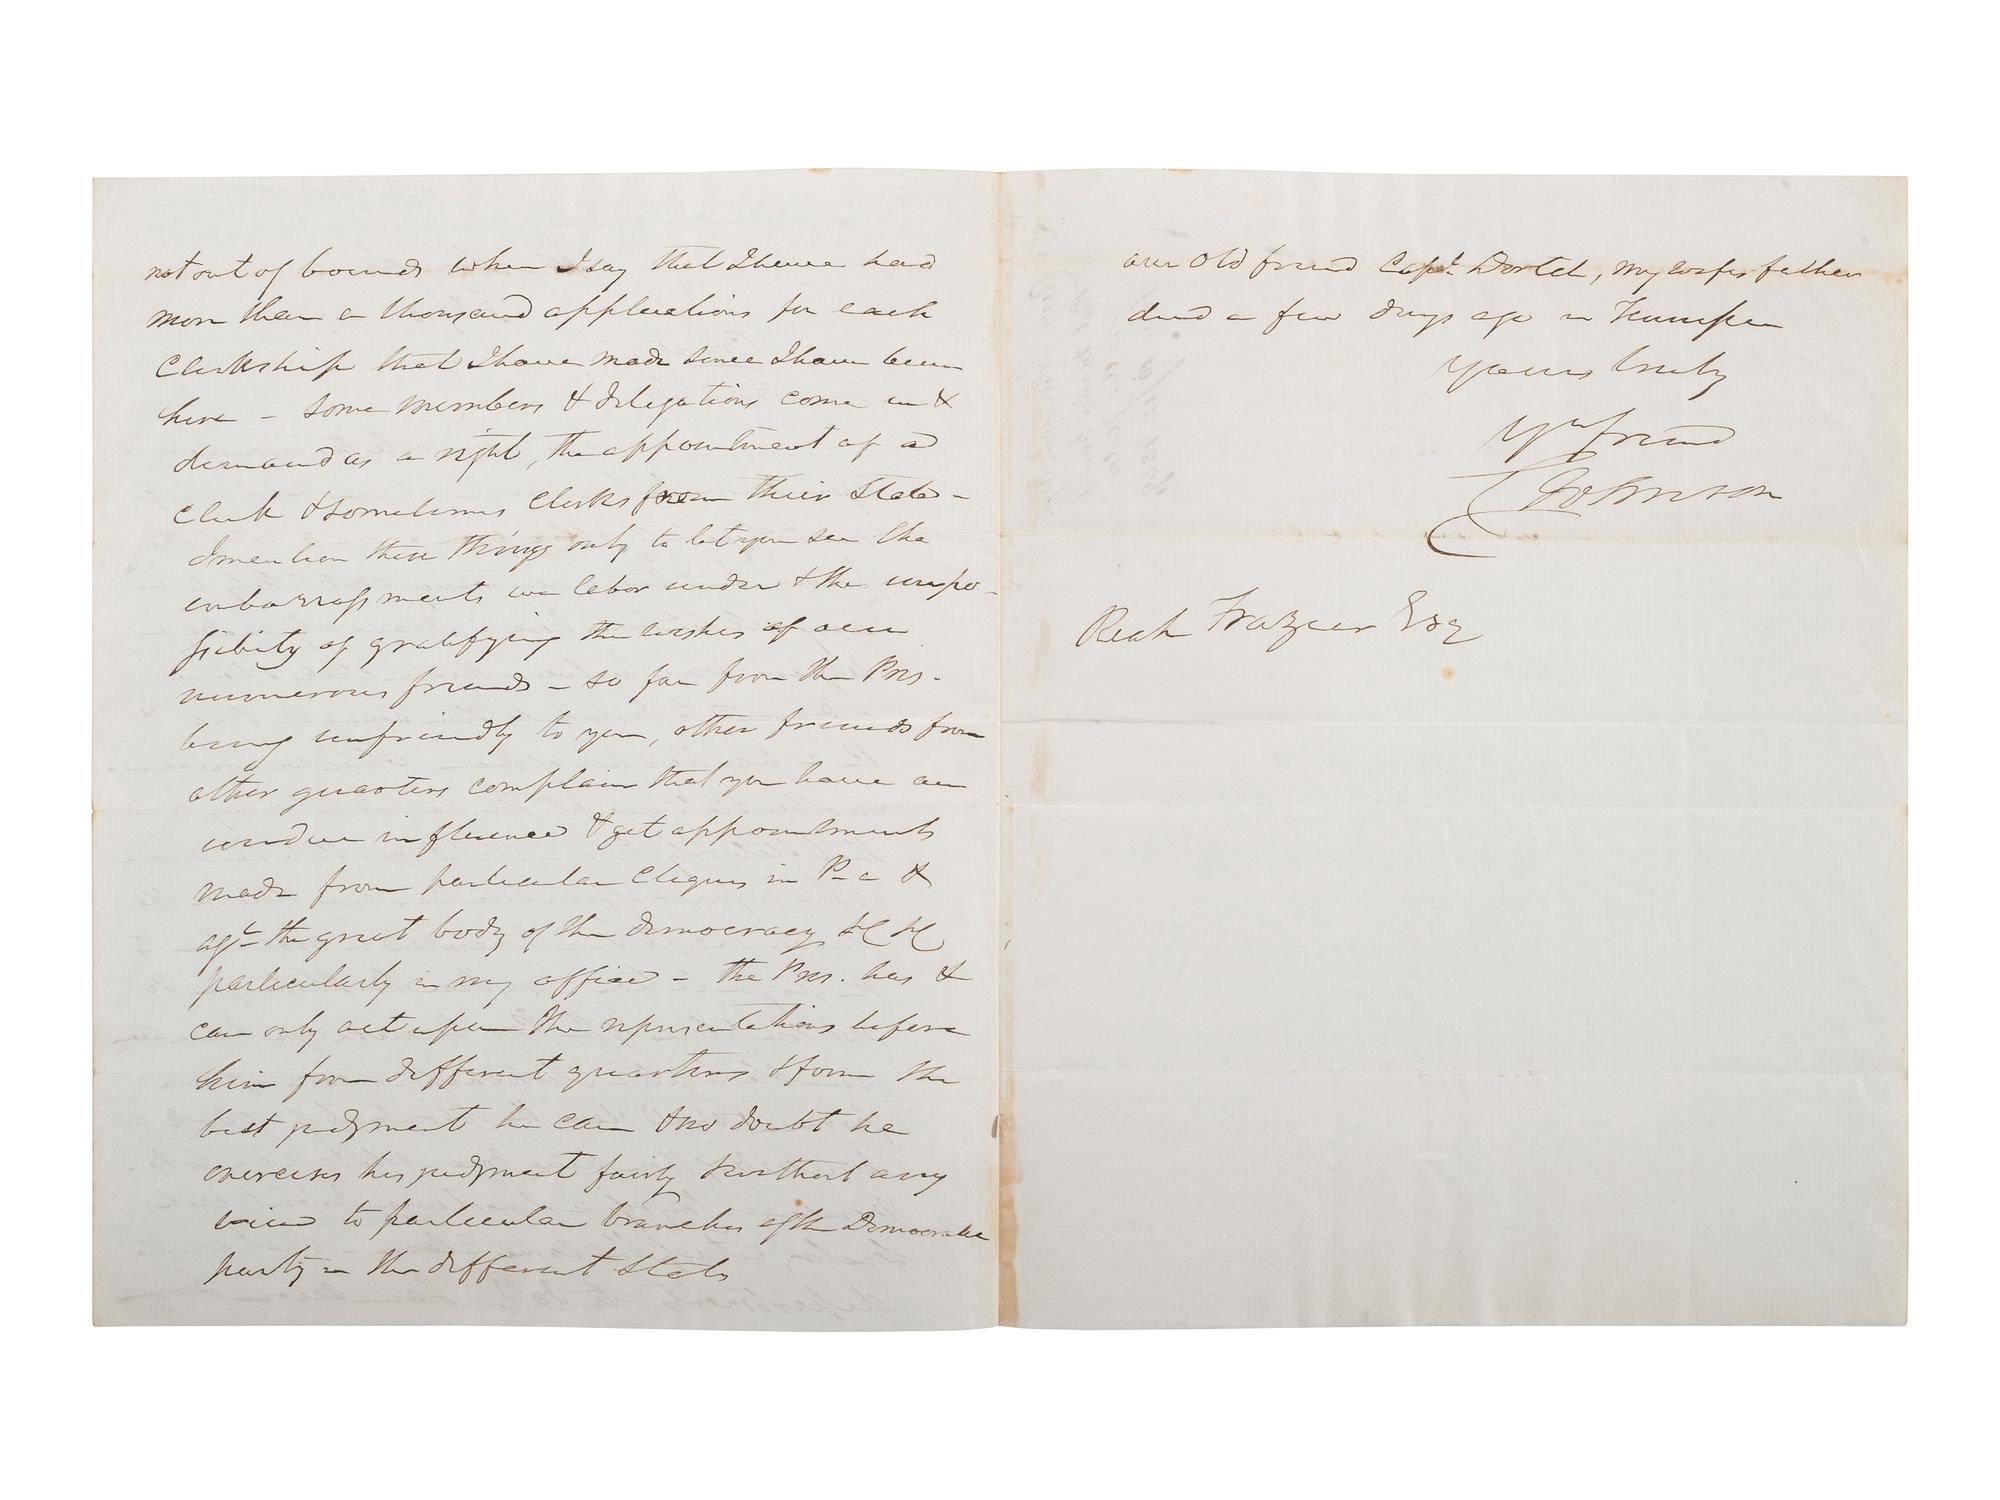 not out of bounds when I say that I have had
more than a thousand applications for each
Clerkship that I have made since I have been
here - some members & delegations come in &
demand as a right, the appointment of a
Clerk & sometimes Clerks from their State -
I mention these things only to let you see the
embarrassments we labor under & the impo-
sibility of gratifying the wishes of our
numerous friends - so far from the Pres.
being unfriendly to you, other friends from
other quarters complain that you have an
undue influence & get appointments
made from particular Cliques in Pa &
agt the great body of the democracy &C &C
particularly in my office - the Pres. has &
can only act upon the representations before
him from different quarters & form the
best judgment he can & no doubt he
exercises his judgment fairly & without any
view to particular branches of the Democratic
party in the different States
our old friend Capt. Dortch, my wifes father
died a few days ago in Tennessee
Yours truly
Yr friend
C Johnson
Reah Frazier Esq